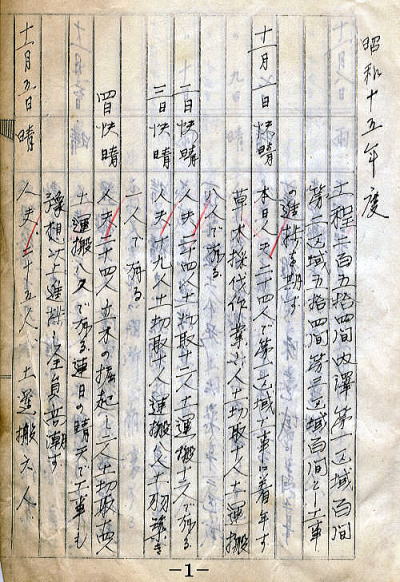 昭和十五年度
工程二百五拾四間内譯第一区域百間
第二区域五拾四間第三区域百間とし工事
の進捗を期す
十一月一日 快晴 本日人夫二十四人で第一区域工事に着手す
草木採伐作業六人土切取十人土運搬
八人である
二日 快晴 人夫二十四人土切取十二人土運搬十二人である
三日 快晴 人夫十九人土切取十人運搬八人土羽築き
一人である
四日 快晴 人夫二十四人立木の掘起し二人土切取十四人
土運搬八人である連日の晴天で工事も
豫想以上進捗し全員普潮す
十一月五日 晴 人夫二十五人で土運搬六人
-1-